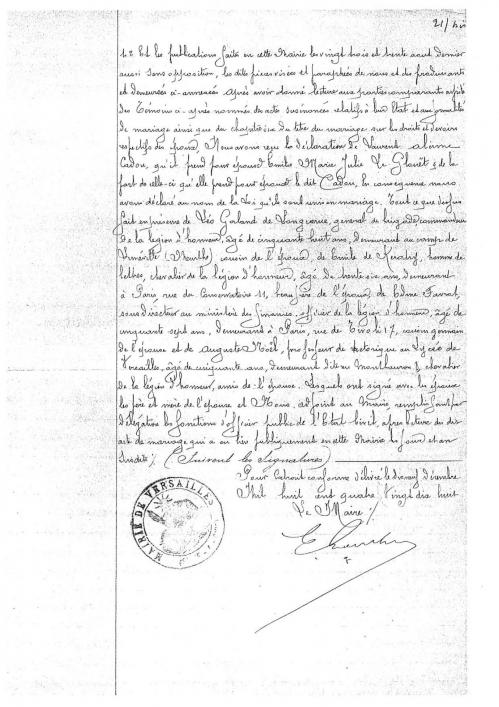 21/bis
1° Et les publications faites en cette Mairie les vingt trois et trente août dernier
aussi sans opposition, les dites pièces visées et paraphées de nous et des produisants
et demeurées ci-annexées. Après avoir donné lecture aux parties comparantes
des témoins ci-après nommés, des actes susénoncés relatifs à leur Etat et aux formalités
de mariage ainsi que du chapitre six du titre du mariage sur les droits et devoirs
respectifs des époux. Nous avons reçu la déclaration de Laurent
Cadou, qu'il prend pour épouse Emilie Marie Julie Le Glouët & de la
part de celle-ci qu'elle prend pour époux le dit Cadou, en conséquence nous
avons déclaré au nom de la Loi qu'ils sont unis en mariage. Tout ce que dessus
fait en présence de Léo de général de brigade, commandeur
de la légion d'honneur, âgé de cinquante huit ans, demeurant au camp de
(Meurthe) cousin de l'époux, de Emile de Kératif, homme de
lettres, chevalier de la légion d'honneur, âgé de trente six ans, demeurant
à Paris rue du Conservatoire 11, beau frère de l'époux, de Edme
sous directeur au ministère des finances, officier de la légion d'honneur, âgé de
cinquante sept ans, demeurant à Paris, rue de Tivoli 17, cousin germain
de l'épouse et de Auguste Noël, professeur de rhétorique au Lycée de
Versailles, âgé de cinquante ans, demeurant dite rue Montbauron 8, chevalier
de la légion d'honneur, amis de l'épouse. Lesquels ont signé avec les époux
les père et mère de l'épouse et Nous, adjoint au Maire, remplissant par
délégation les fonctions d'officier public de l'Etat Civil, après lecture du dit
acte de mariage qui a eu lieu publiquement en cette Mairie les jour et an
susdits ∕. (Suivent les signatures)
Pour extrait conforme délivré le neuf décembre
Mil huit cent quatre vingt dix huit
Le Maire ∕.
MAIRIE DE VERSAILLES